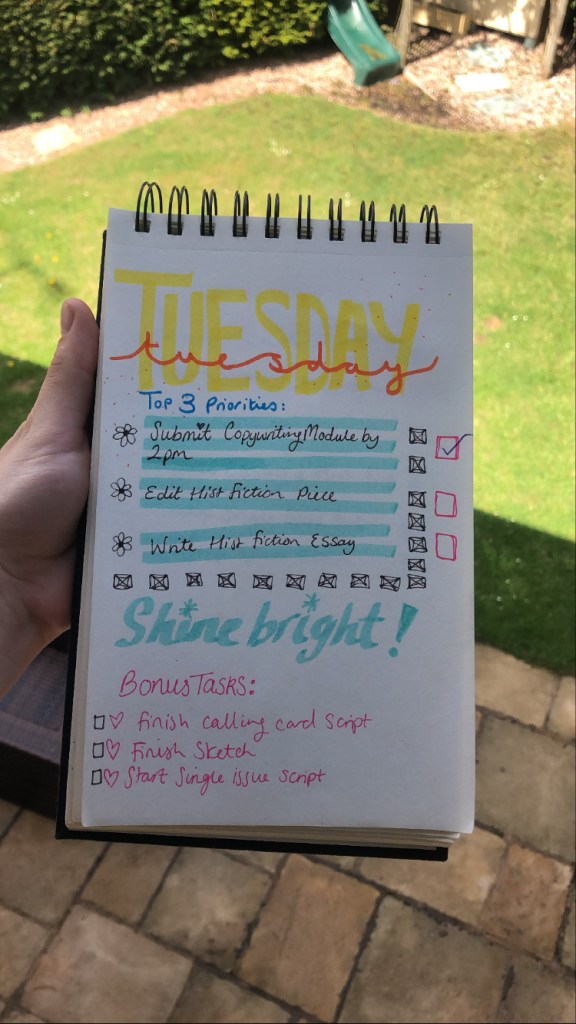 TUESDAY
tuesday
Top 3 Priorities:
Submit Copywriting Module by
2pm
Edit Hist Fiction Piece
Write Hist Fiction Essay
Shine bright!
Bonus Tasks:
Finish calling card script
Finish Sketch
Start Single issue script